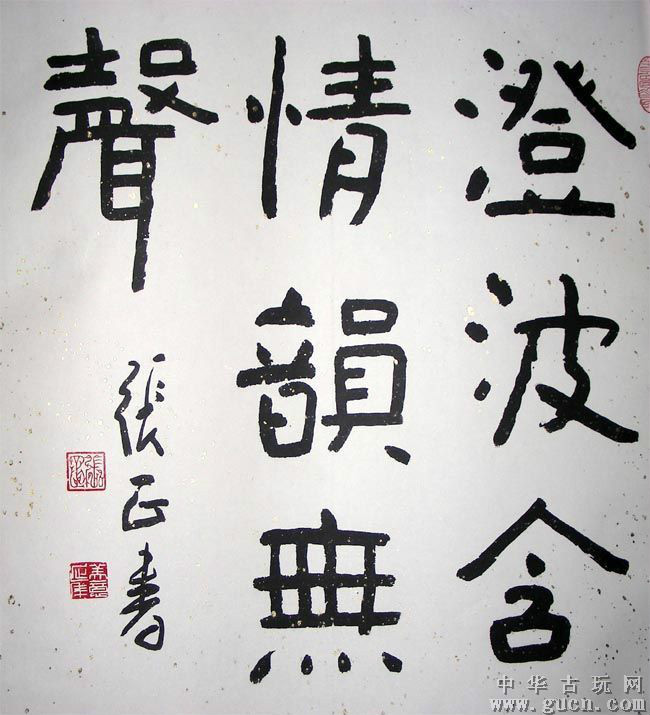 澄波含
情韻無
聲
張正書
中华古玩网
www.gucn.com